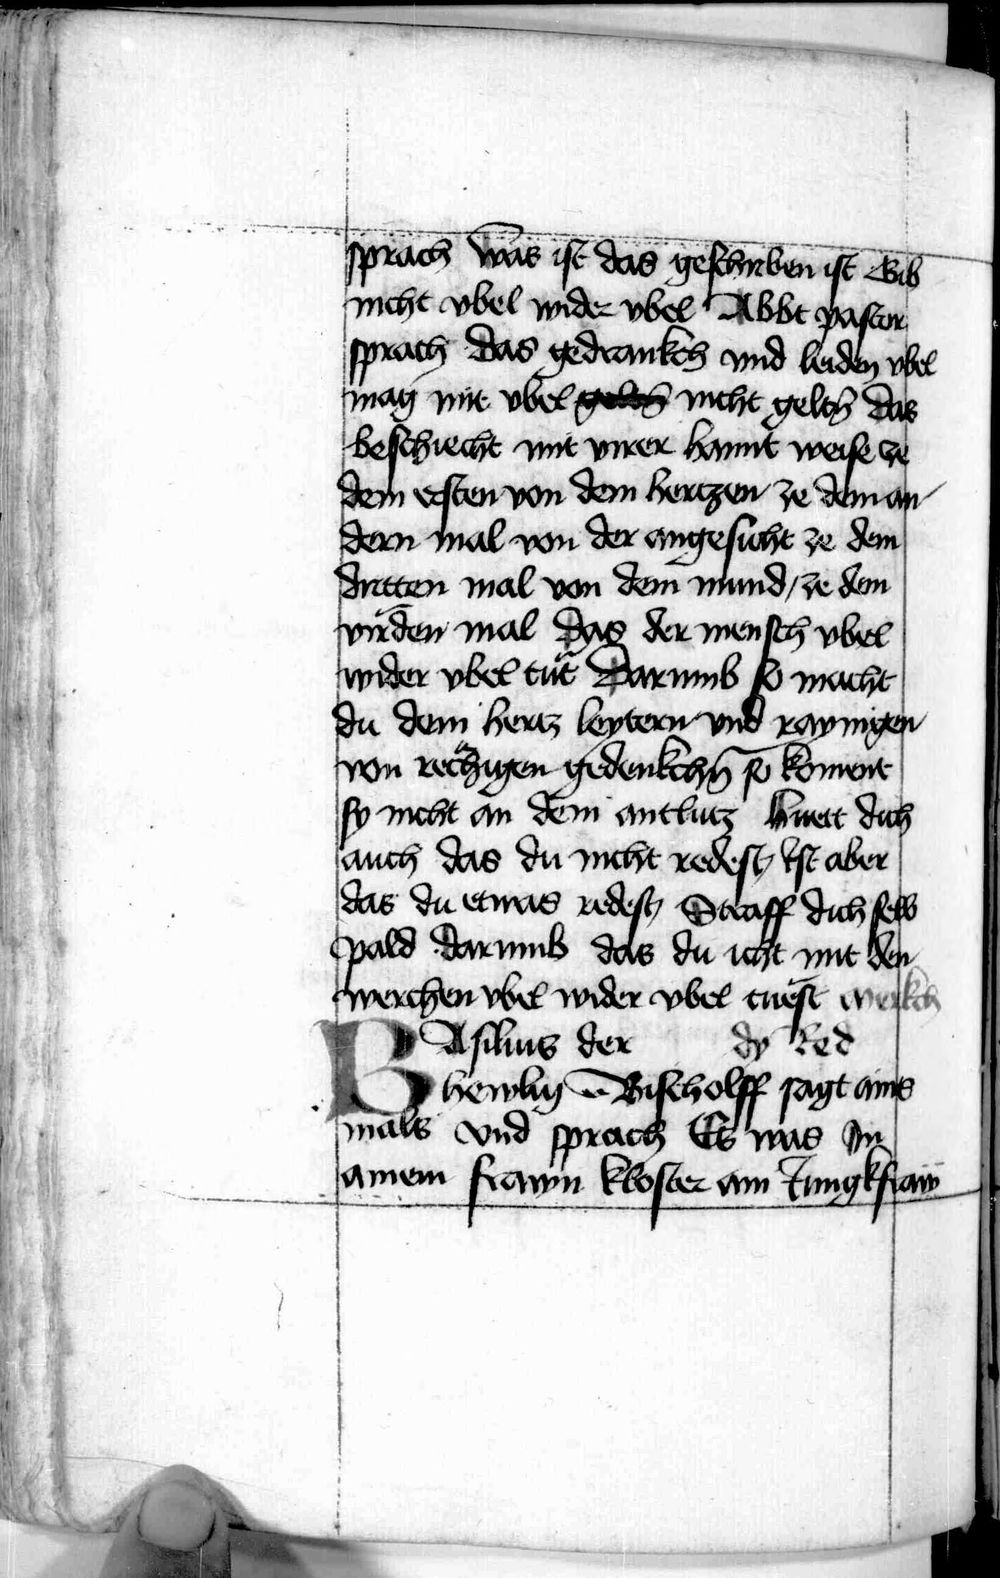 sprach was ist das geschriben ist Gib
nicht vbel wider vbel Abbt pastor
sprach das gedrankch vnd leiden vbel
mag mit vbel nicht geltn̄ das
beschiecht mit virer hannt weise ze
dem ersten von dem hertzen ze dem an
dern mal von der angesicht ze dem
dritten mal von dem mund / ze dem
virden mal das der mensch vbel
wider vbel tut Darumb so macht
du dem hertz leytern vnd raynigen
von rechigen gedenkchn̄ so koment
sy nicht an dem antlutz huett dich
auch das du nicht redest Ist aber
das du etwas redest Straff dich selb
pald darumb das du icht mit den
werchen vbel wider vbel tuest werkch
BAsilius der dy Red
hewlig Bischolff sagt ains
mals vnd sprach Es was In
ainem frawn kloster ain Jungkfraw